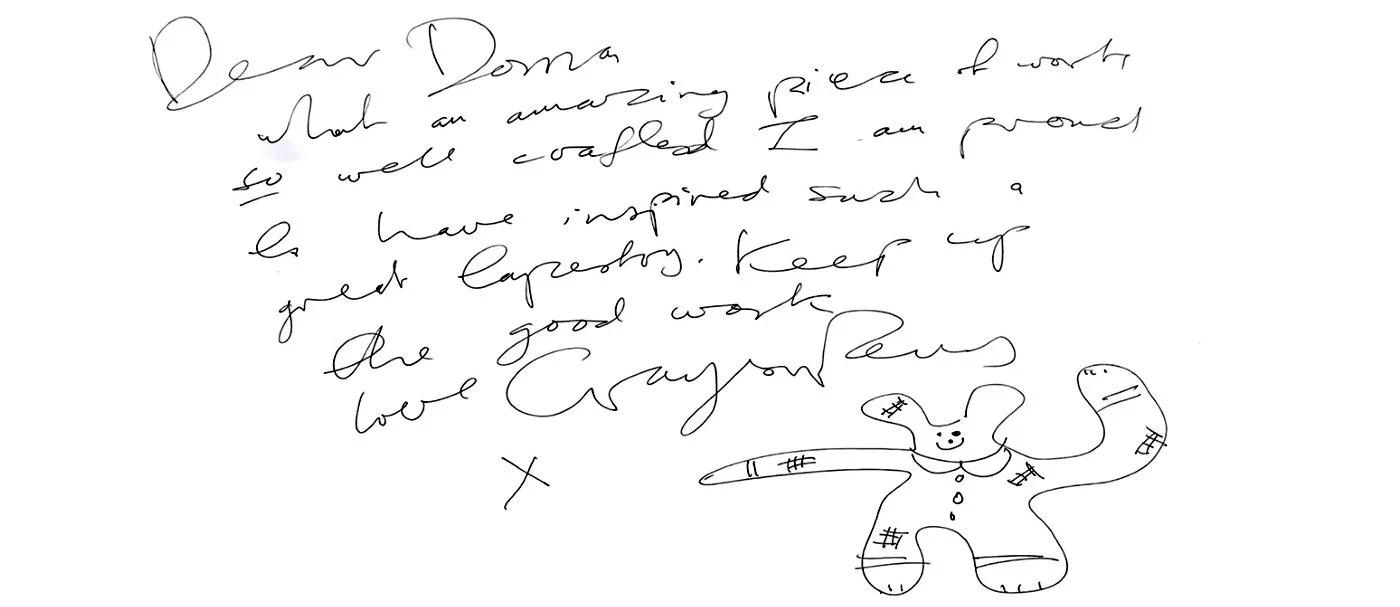 Dear Donna
what an amazing piece of work
so well crafted I am proud
to have inspired such a
great tapestry. Keep up
the good work
love Grayson Perry
X